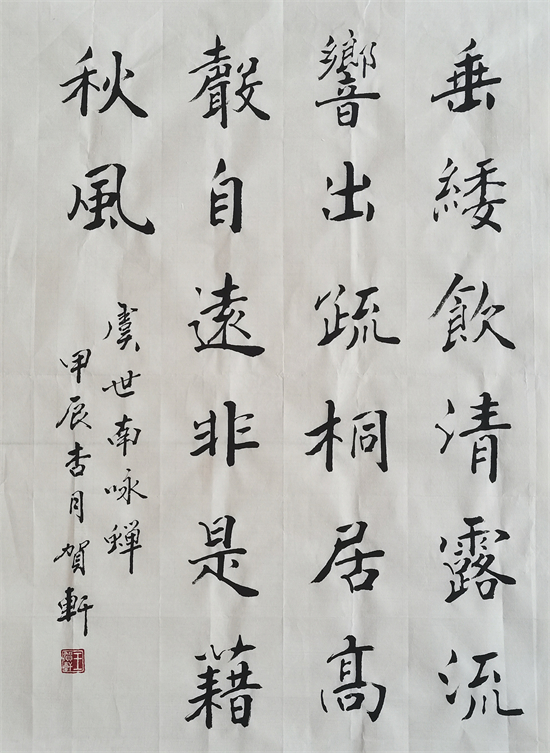 垂緌飲清露流
響出疏桐居高
聲自遠非是藉
秋風
虞世南咏蟬
甲辰杏月賀軒